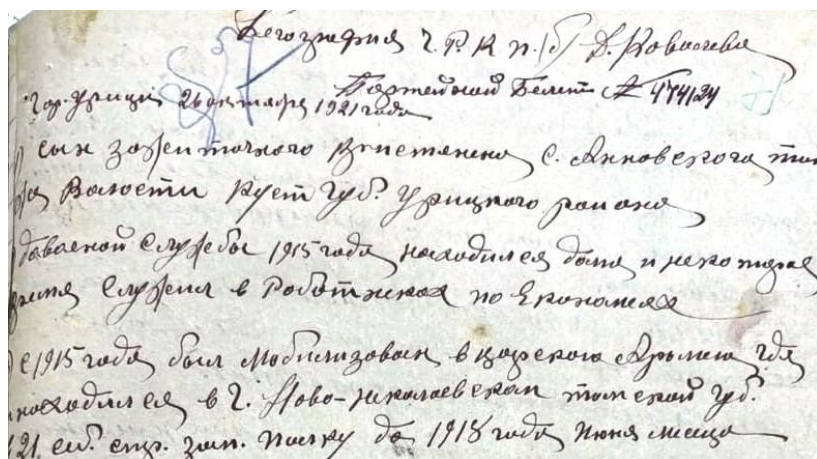 Беография Ч. Р. К п. (б) Д. Ковалева
Гор. Урицк 26 октября 1921 года Партейный Белет № 474124
сын зажиточного крестянена с. Анновского
Волости Куст Губ. Урицкого района
даваеной Службы 1915 года находился дома и некоторае
время Служил в Роботнеках по Економеях
С 1915 года был Мобилизован в царскою Армию где
находился в г. Ново-николаевском томской губ.
21. сиб. стр. зап. полку до 1918 года Июня месеца